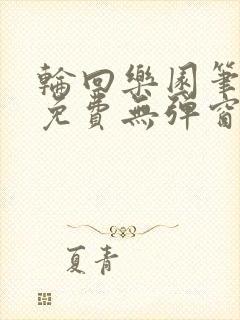 輪回樂園筆
免費無彈窗
夏青